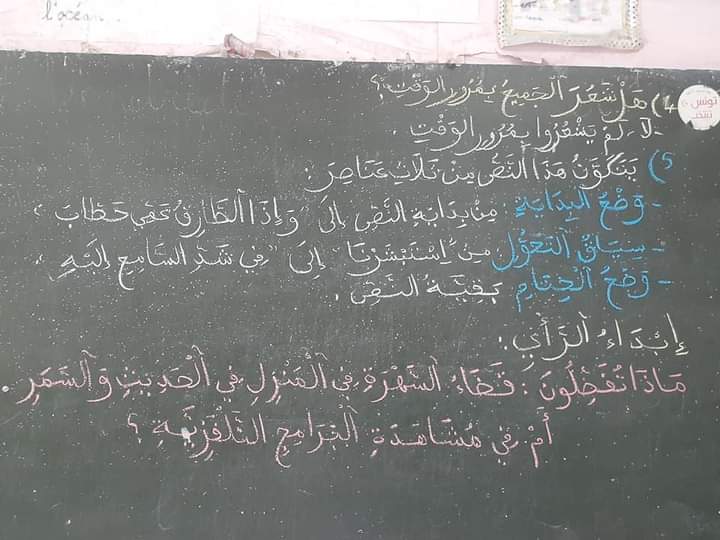 l'océan
4) هَلْ شَعُرَ الْجَمِيعُ بِمُرُورِ الوَقْتِ؟
- لَا لَمْ يَشْعُرُوا بِمُرُورِ الوَقْتِ.
5) يَتَكَوَّنُ هَذَا النَّصُّ مِنْ ثَلَاثِ عَنَاصِرَ:
- وَضْعُ البِدَايَةِ: مِنْ بِدَايَةِ النَّصِّ إِلَى "وَإِذَا الطَّارِقُ عَمِّي حَطَّابَ"
- سِيَاقُ التَّحَوُّلِ مِنْ "اِسْتَبْشَرْنَا" إِلَى "فِي شَدِّ السَّامِعِ إِلَيْهِ"
- وَضْعُ الْخِتَامِ بَقِيَّةُ النَّصِّ.
إِبْدَاءُ الرَّأْيِ:
مَاذَا تُفَضِّلُونَ: قَضَاءُ السَّهْرَةِ فِي الْمَنْزِلِ فِي الْحَدِيثِ وَالسَّمَرِ.
أَمْ فِي مُشَاهَدَةِ الْبَرَامِجِ التَّلْفَزِيَّةِ؟
تونس